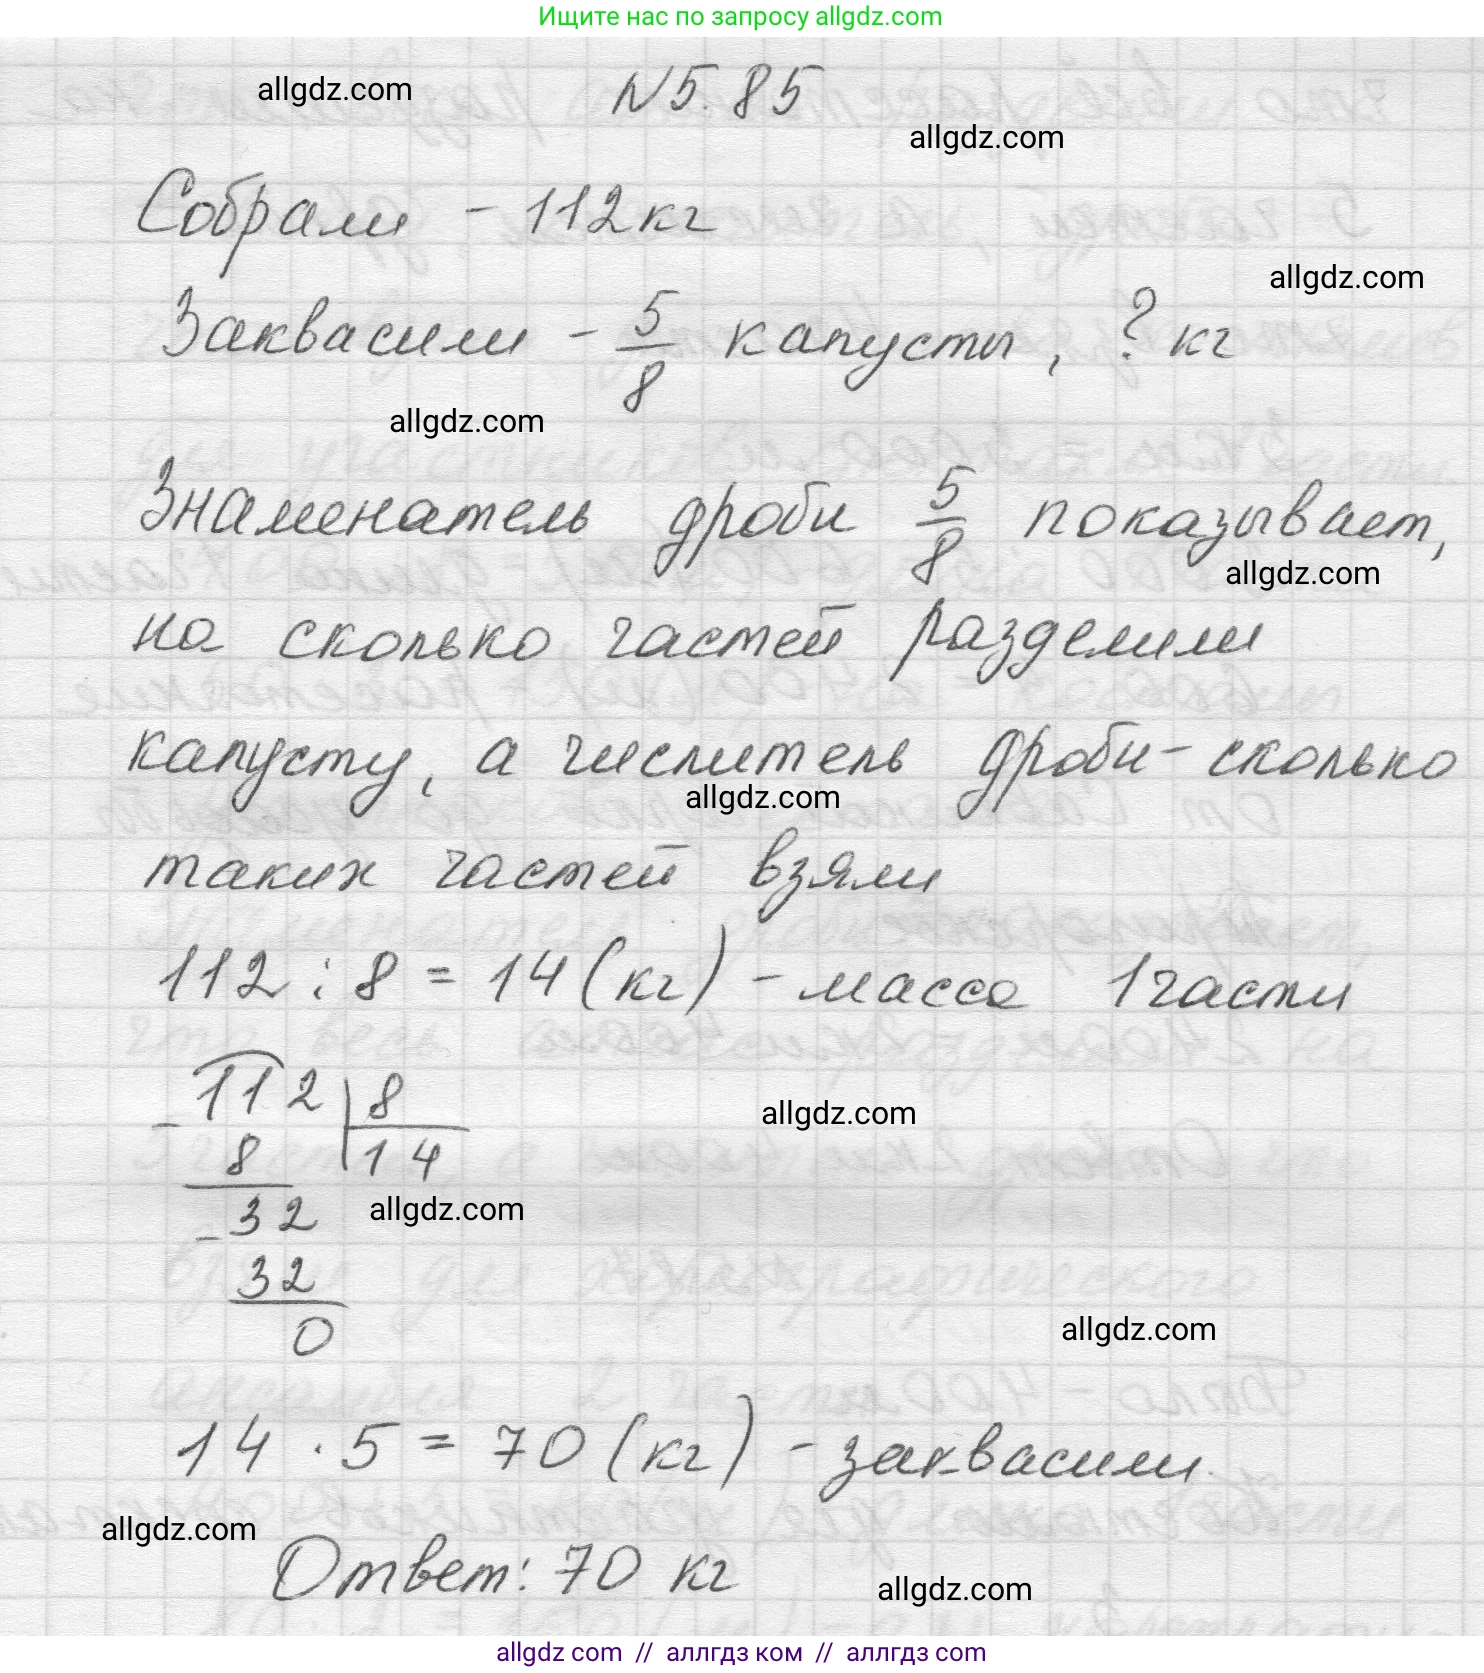 Ищите нас по запросу allgdz.com
allgdz.com
N 5.85
allgdz.com
Собрали - 112 кг
allgdz.com
Заквасили - 5/8 капусты, ? кг
allgdz.com
Знаменатель дроби 5/8 показывает,
allgdz.com
на сколько частей разделили
капусту, а числитель дроби - сколько
allgdz.com
таких частей взяли
112 : 8 = 14 (кг) - масса 1 части
112 | 8
allgdz.com
- 8 | 14
allgdz.com
- 32
32
0
allgdz.com
14 · 5 = 70 (кг) - заквасили.
allgdz.com
Ответ: 70 кг
allgdz.com
allgdz.com // аллгдз ком // аллгдз.com